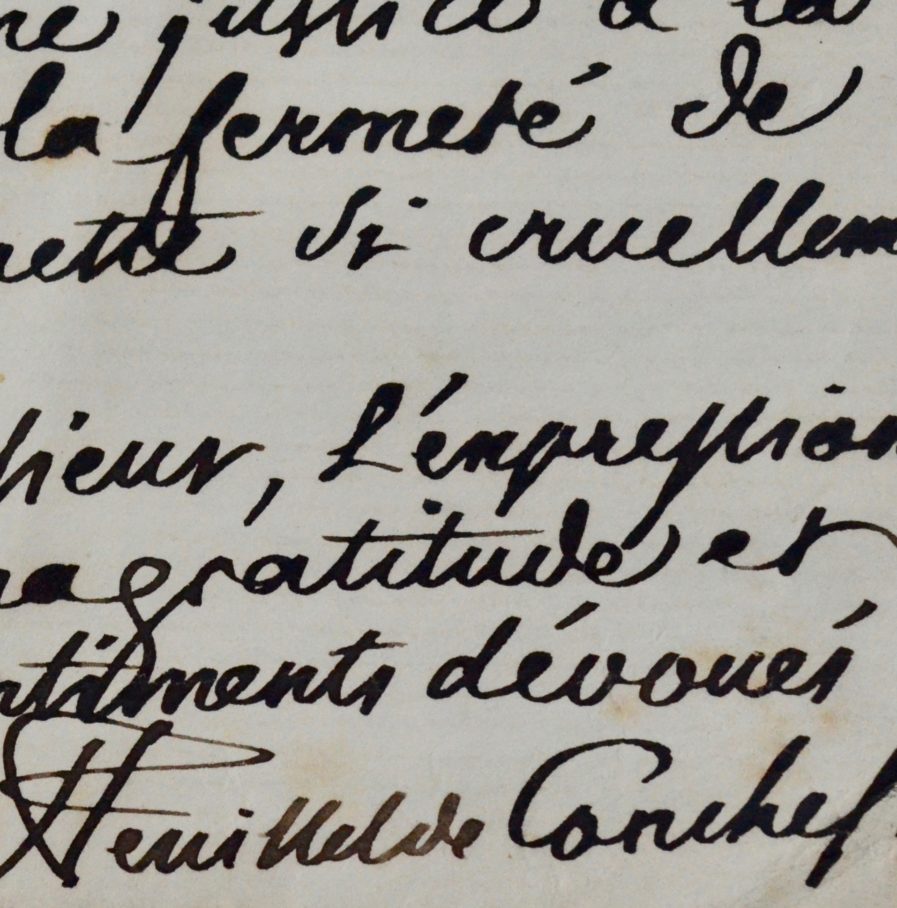 ne justice à la
la fermeté de
nette si cruellem
sieur, l'expression
ma gratitude et
ntiments dévoués
Feuillet de Conches